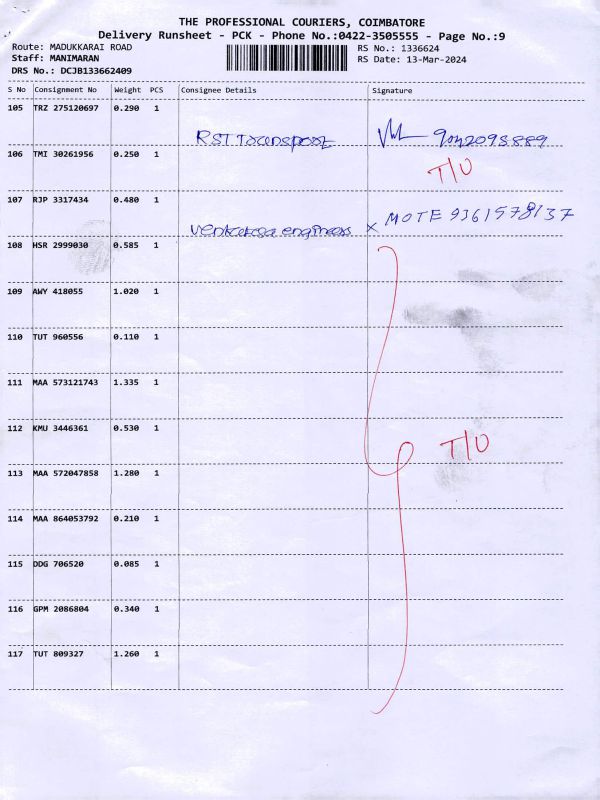 THE PROFESSIONAL COURIERS, COIMBATORE
Delivery Runsheet - PCK - Phone No.:0422-3505555 - Page No.:9
Route: MADUKKARAI ROAD
RS No.: 1336624
Staff: MANIMARAN
RS Date: 13-Mar-2024
DRS No.: DCJB133662409
S No Consignment No Weight PCS Consignee Details Signature
105 TRZ 275120697 0.290 1
RST Transport 9042095889
106 TMI 30261956 0.250 1
T/U
107 RJP 3317434 0.480 1
engineers x MOTE 9361578137
108 HSR 2999030 0.585 1
109 AWY 418055 1.020 1
110 TUT 960556 0.110 1
111 MAA 573121743 1.335 1
112 KMU 3446361 0.530 1
T/U
113 MAA 572047858 1.280 1
114 MAA 864053792 0.210 1
115 DDG 706520 0.085 1
116 GPM 2086804 0.340 1
117 TUT 809327 1.260 1